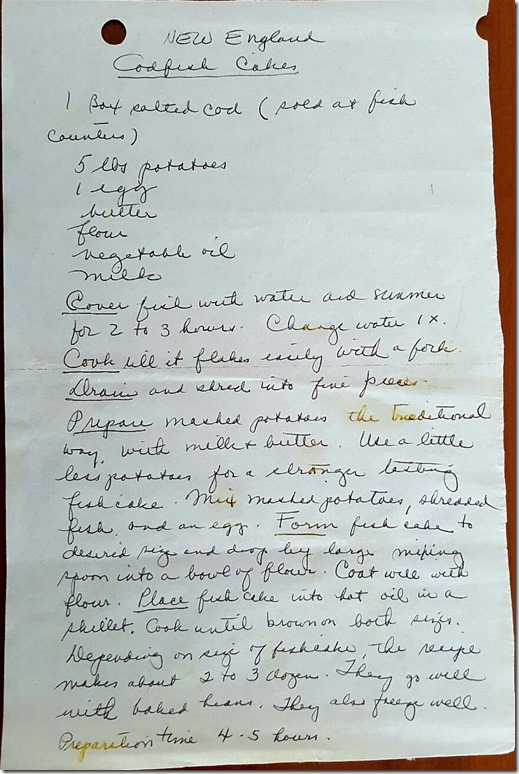 NEW England
Codfish Cakes
1 Box salted cod (sold at fish
counters)
5 lbs potatoes
1 egg
butter
flour
vegetable oil
milk
Cover fish with water and simmer
for 2 to 3 hours. Change water 1x.
Cook till it flakes easily with a fork.
Drain and shred into fine pieces.
Prepare mashed potatoes the traditional
way, with milk + butter. Use a little
less potatoes for a stronger tasting
fish cake. Mix mashed potatoes, shredded
fish and an egg. Form fish cake to
desired size and drop by large mixing
spoon into a bowl of flour. Coat well with
flour. Place fish cake into hot oil in a
skillet. Cook until brown on both sizes.
Depending on size of fishcake, the recipe
makes about 2 to 3 dozen. They go well
with baked beans. They also freeze well.
Preparation time 4-5 hours.